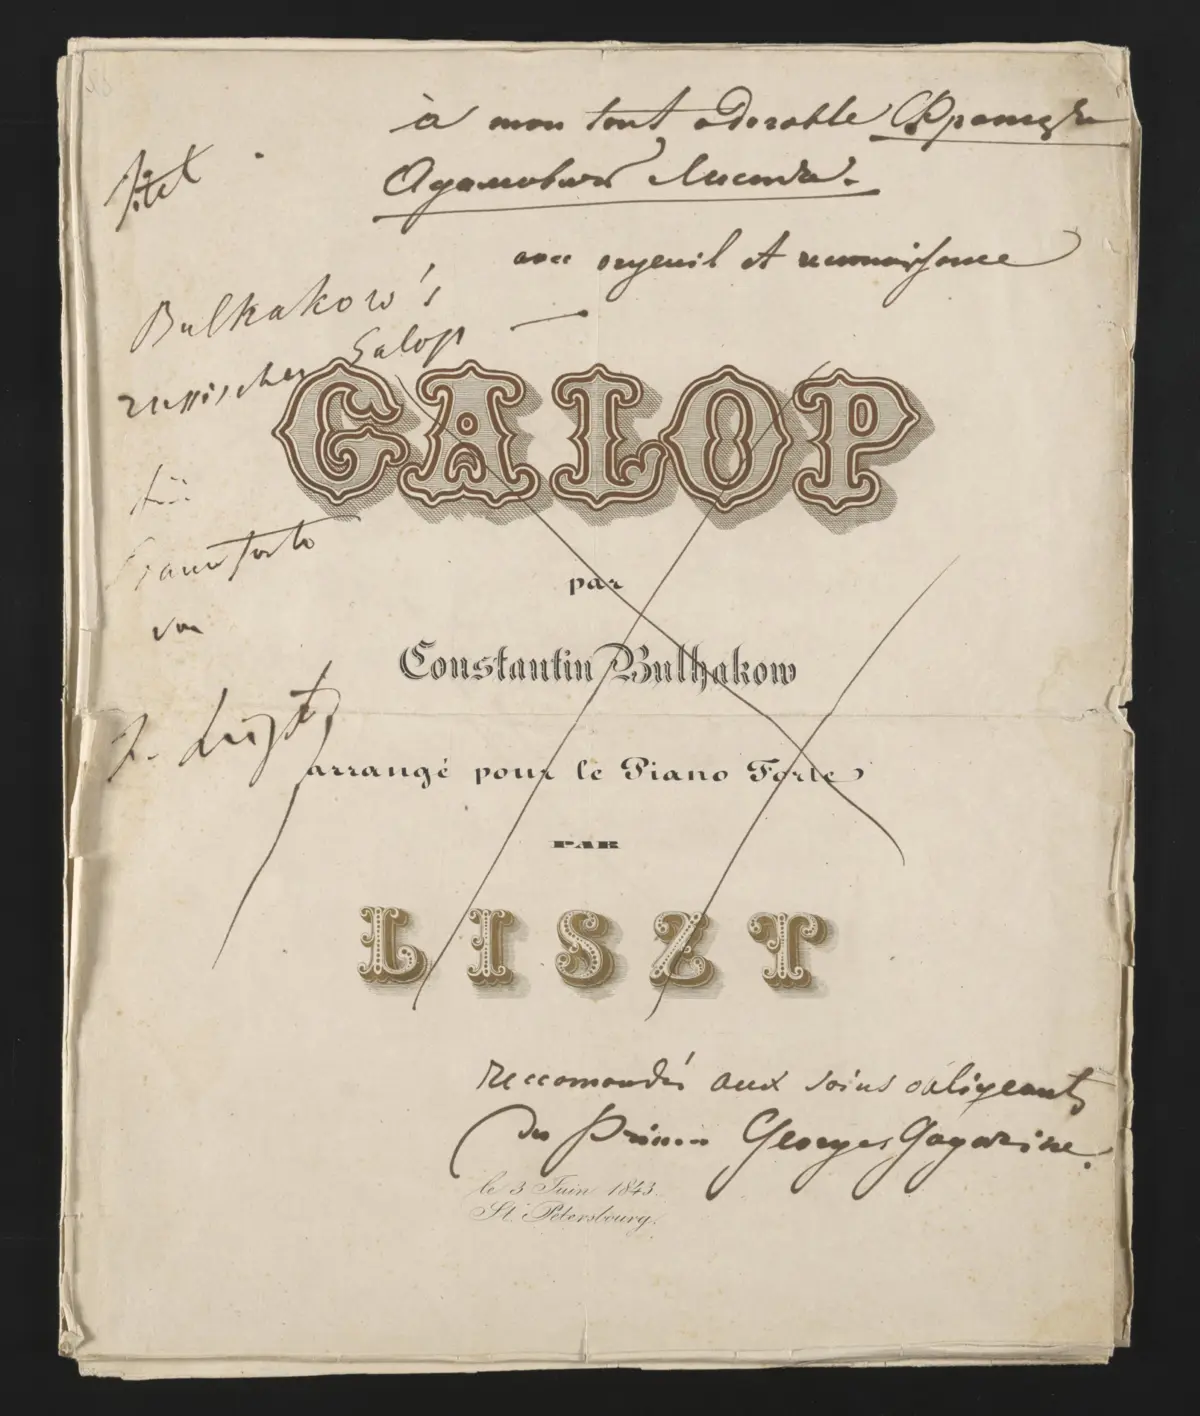 à mon tout adorable Францу
Адамовичу Листу.
avec orgeuil et reconnaissance
Titel
Bulhakow's
russischer Galop
für
Pianoforte
von
F. Liszt
GALOP
par
Constantin Bulhakow
arrangé pour le Piano Forte
PAR
LISZT
reccomandés aux soins obligeants
du Prince Georges Gagarine.
le 3 Juin 1843.
St. Pétersbourg.